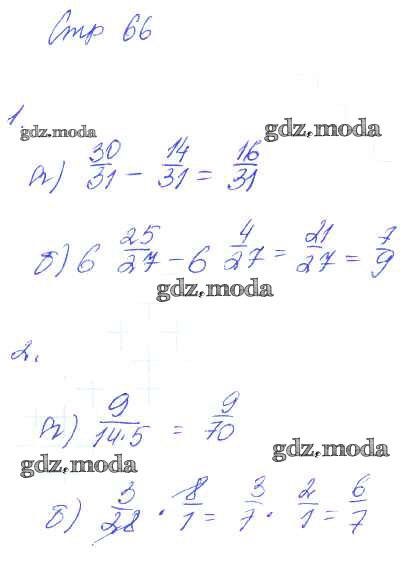 Стр 66
1.
gdz.moda
gdz.moda
а) 30/31 - 14/31 = 16/31
б) 6 25/27 - 6 4/27 = 21/27 = 7/9
gdz.moda
2.
а) 9/14·5 = 9/70
gdz.moda
gdz.moda
б) 3/28 · 8/1 = 3/7 · 2/1 = 6/7